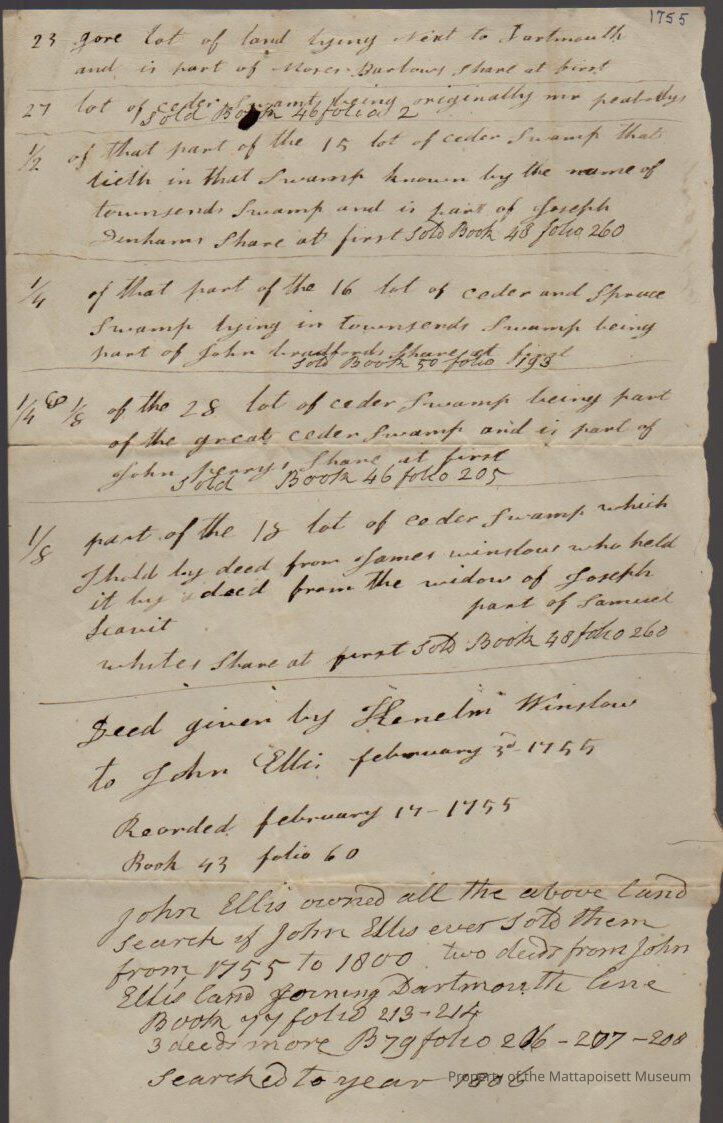 1755
23 gore lot of land lying Next to Dartmouth
and is part of Moses Barlows Share at first
27 lot of ceder Swamt being originally mr peabodys
Sold Book 46 folio 2
1/2 of that part of the 15 lot of ceder Swamp that
lieth in that Swamp known by the name of
townsends Swamp and is part of Joseph
Denhams Share at first Sold Book 48 folio 260
1/4 of that part of the 16 lot of ceder and Spruce
Swamp lying in townsends Swamp being
part of John bradfords Share at first
Sold Book 50 folio 193
1/4 & 1/8 of the 28 lot of ceder Swamp being part
of the great ceder Swamp and is part of
John perrys Share at first
Sold Book 46 folio 205
1/8 part of the 18 lot of ceder Swamp which
I hold by deed from James winslow who held
it by deed from the widow of Joseph
part of Samuel
whites Share at first Sold Book 48 folio 260
Deed given by Kenelm Winslow
to John Ellis february 3d 1755
Reorded february 17 - 1755
Book 43 folio 60
John Ellis owned all the above land
Search if John Ellis ever Sold them
from 1755 to 1800 two deeds from John
Ellis land Joining Dartmouth line
Book 77 folio 213-214
3 deeds more B 79 folio 206 - 207 - 208
Searched to year 1806
Property of the Mattapoisett Museum